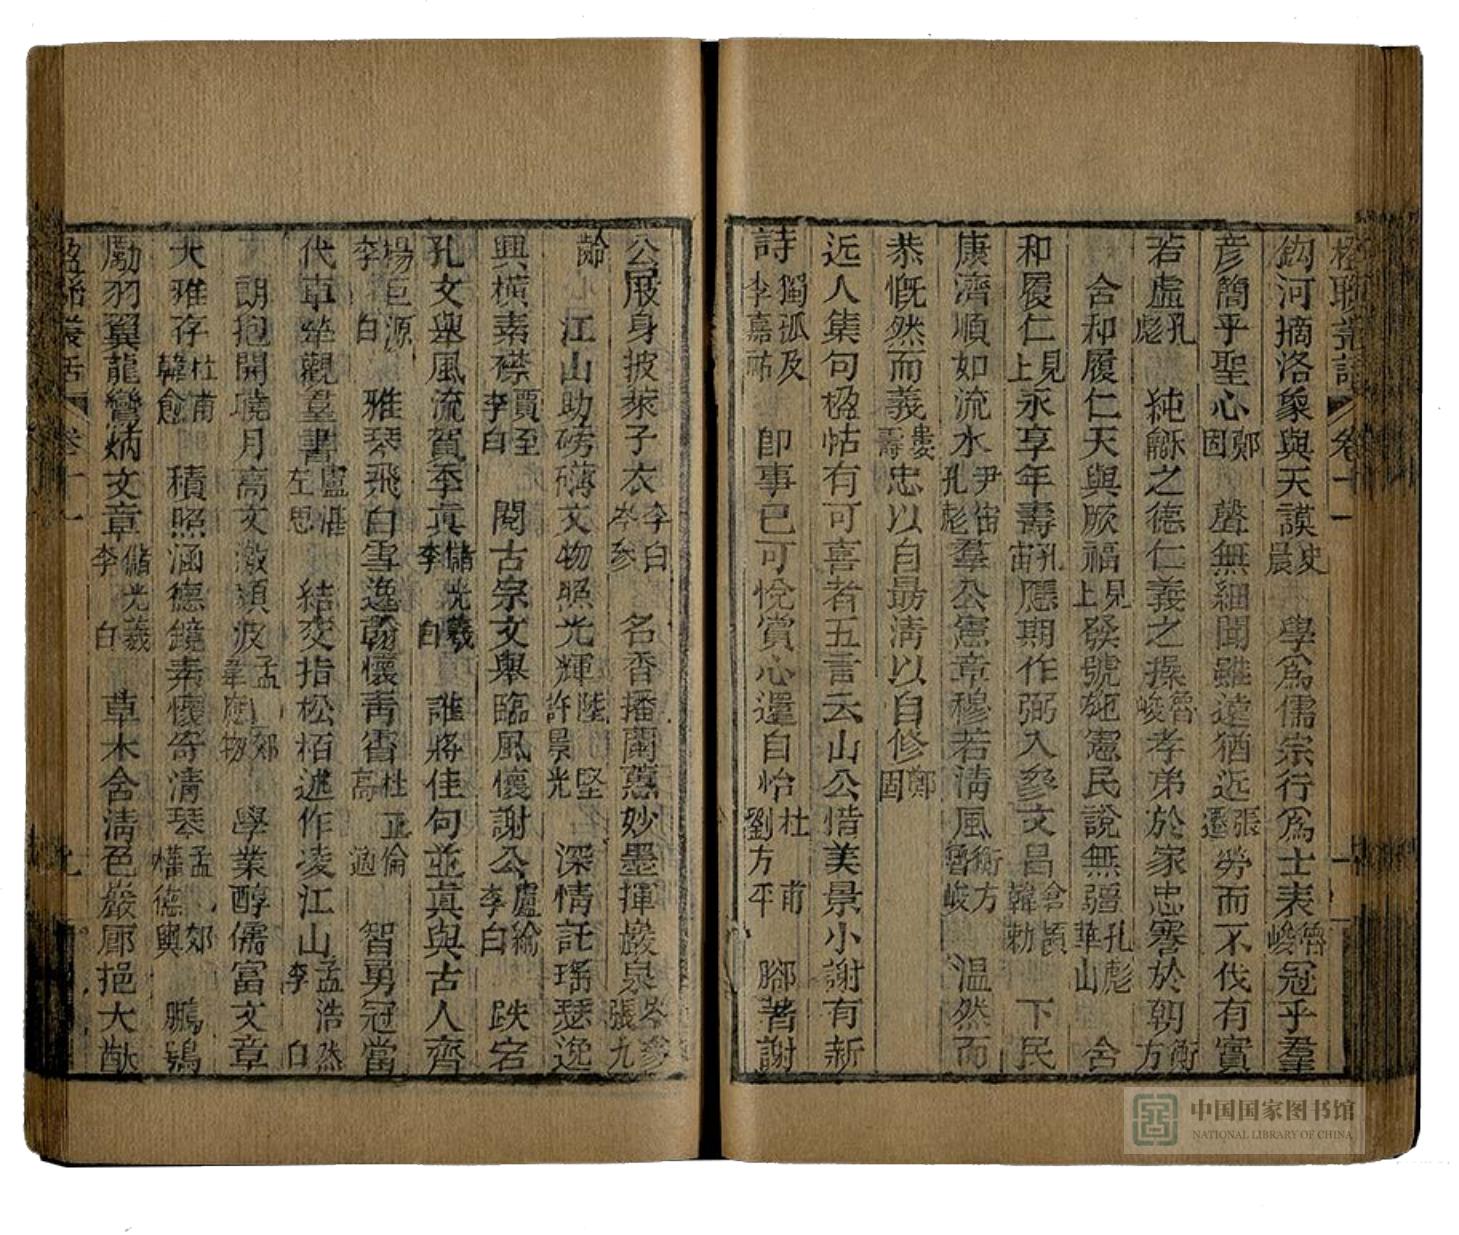 楹聯叢話 卷十一
鈎河摘洛象與天謨史晨 學爲儒宗行爲士表魯峻冠乎羣
彦簡乎聖心鄭固 聲無細聞雖遠猶近張遷勞而不伐有實
若虛孔彪 純龢之德仁義之操魯峻孝弟於家忠謇於朝衡方
含和履仁天與厥福見上發號施憲民說無疆孔彪華山 含
和履仁見上永享年壽孔宙應期作弼入參文昌倉頡韓勑 下民
康濟順如流水尹宙孔彪羣公憲章穆若清風衡方魯峻 温然而
恭慨然而義婁壽忠以自勗清以自修鄭固
近人集句楹帖有可喜者五言云山公惜美景小謝有新
詩獨孤及李嘉祐 即事已可悅賞心還自怡杜甫劉方平 腳著謝
公屐身披萊子衣李白岑參 名香播蘭蕙妙墨揮巖泉岑參張九
齡 江山助磅礴文物照光輝陸堅許景光 深情託瑤瑟逸
興橫素襟賈至李白 閱古宗文舉臨風懷謝公盧綸李白 跌宕
孔文舉風流賀季真儲光羲李白 誰將佳句並真與古人齊
楊巨源李白 雅琴飛白雪逸翰懷青霄杜正倫高適 智勇冠當
代章華觀羣書盧諶左思 結交指松柏述作凌江山孟浩然李白
朗抱開曉月高文激頹波孟郊韋應物 學業醇儒富文章
大雅存杜甫韓愈 積照涵德鏡素懷寄清琴孟郊權德輿 鵬鶚
勵羽翼龍鸞炳文章儲光羲李白 草木含清色巖廊挹大猷
楹聯叢話 卷十一 九
中国国家图书馆
NATIONAL LIBRARY OF CHINA